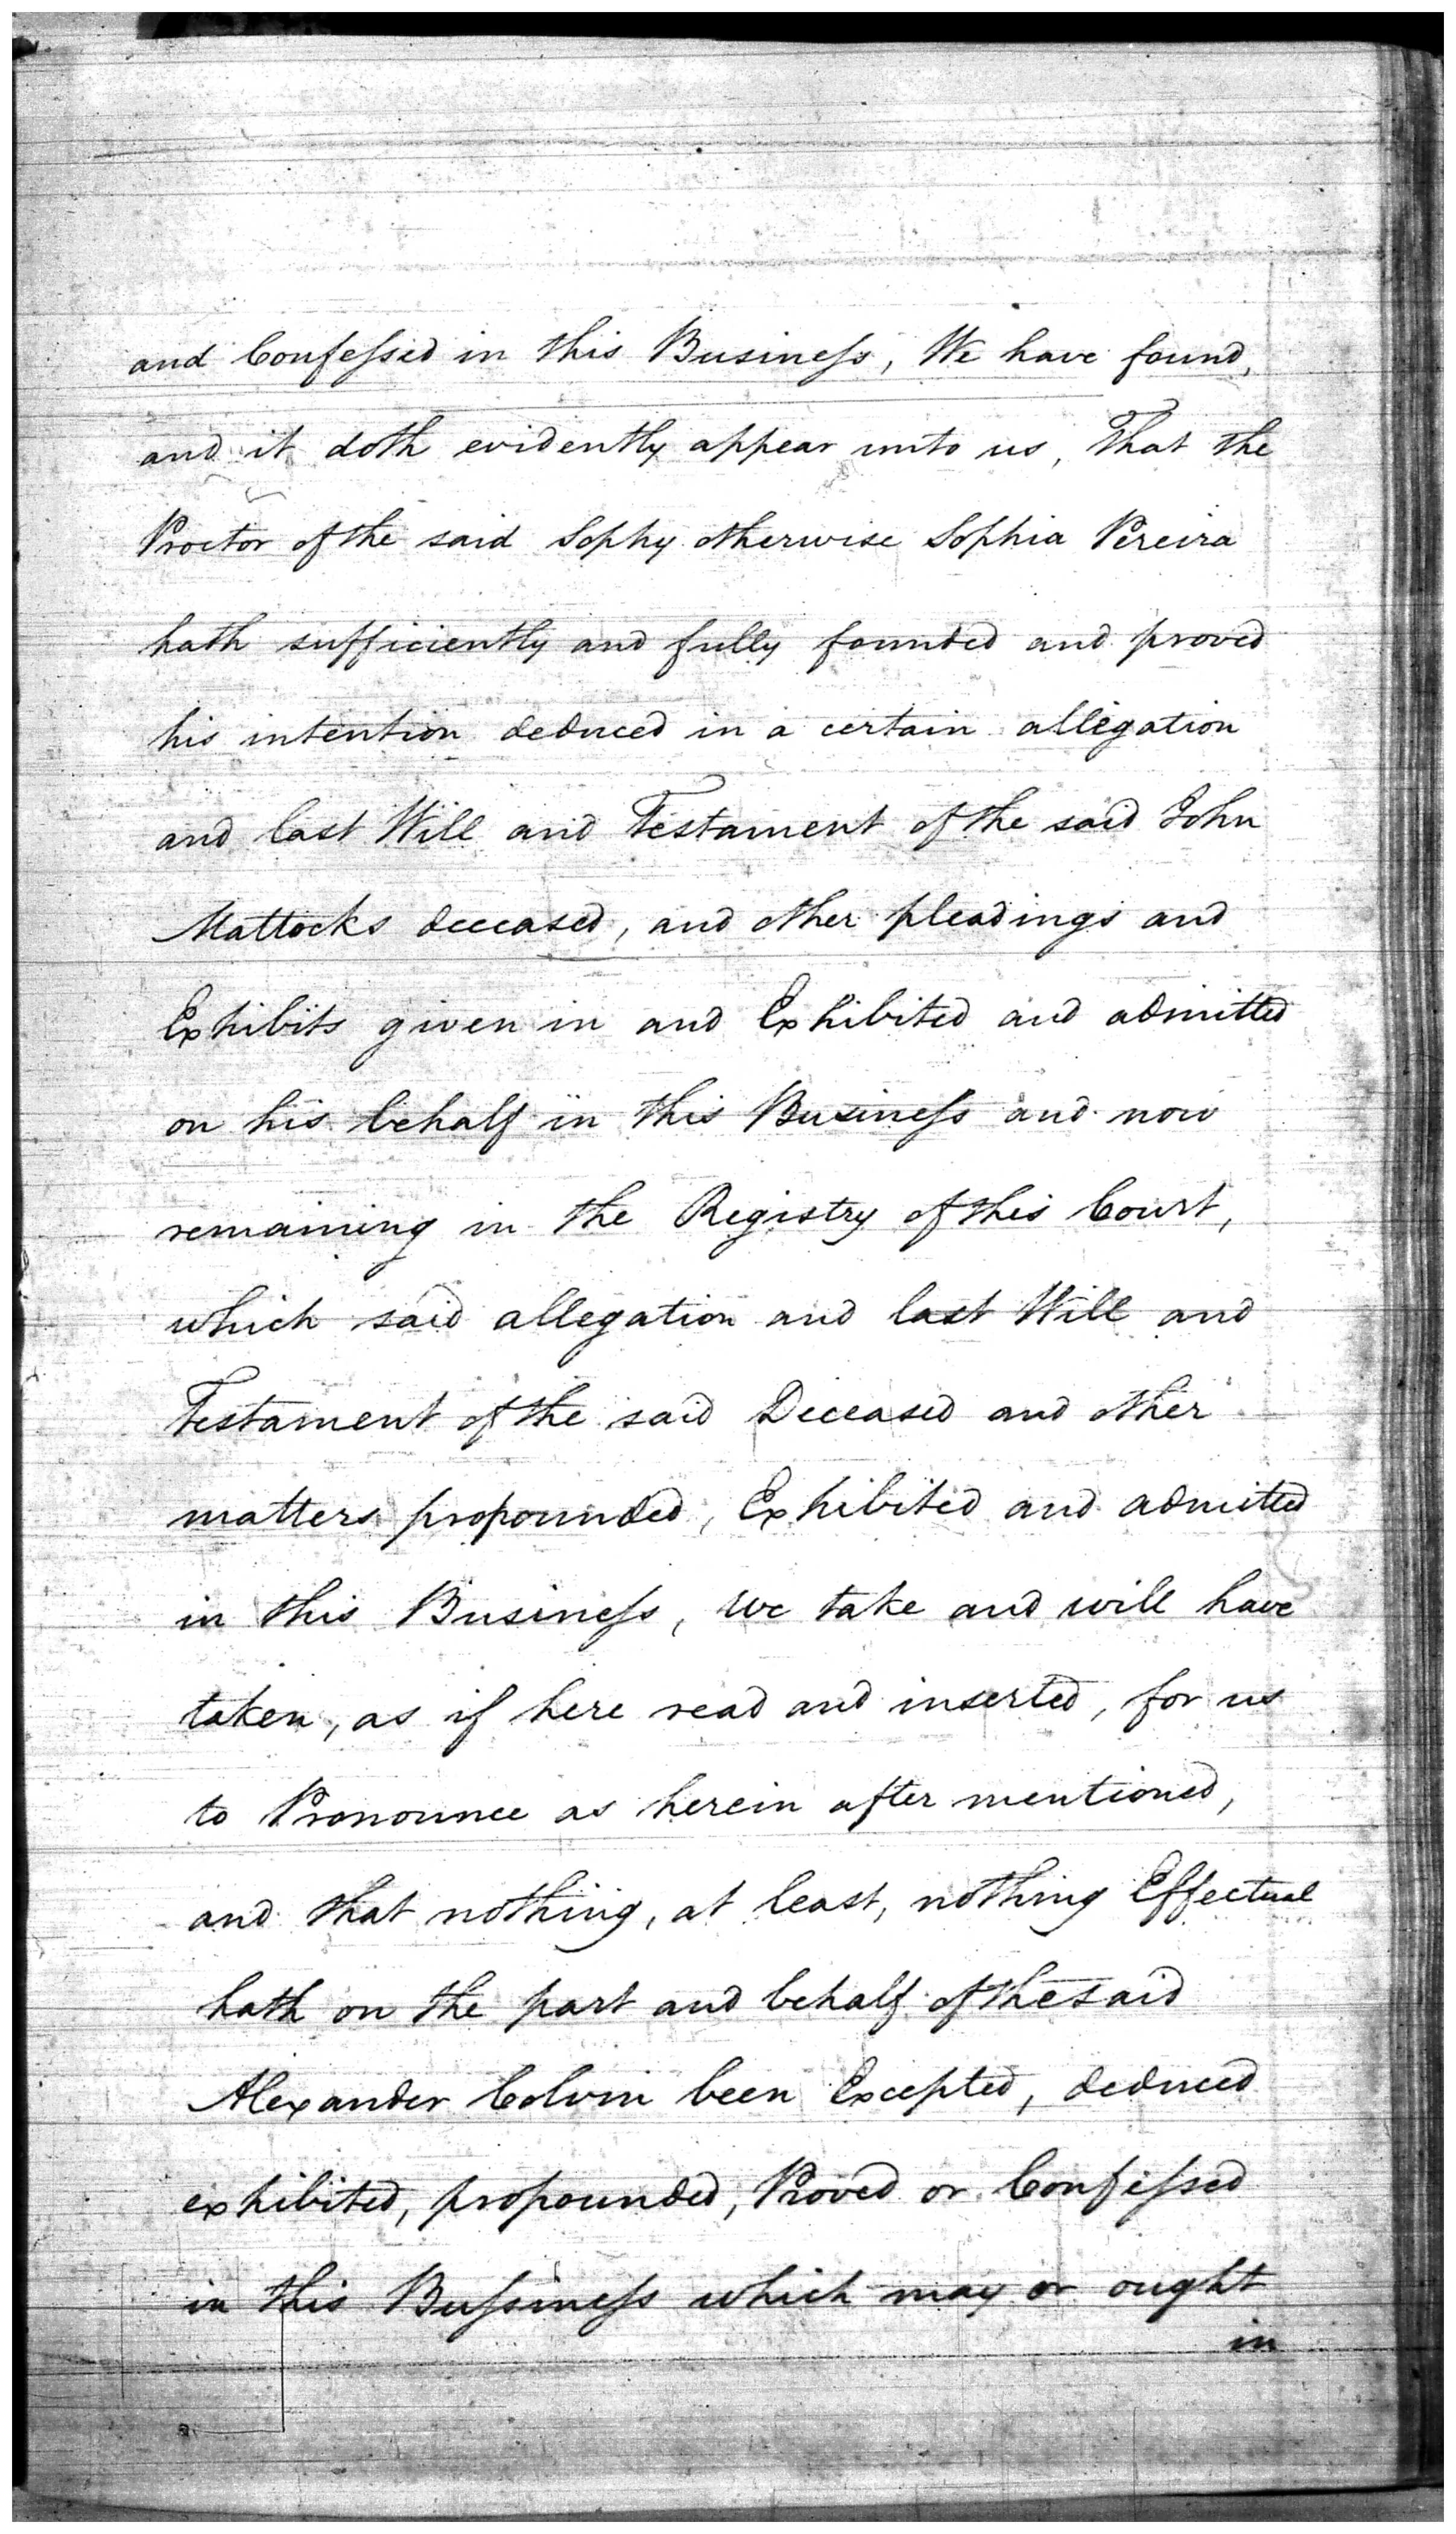 and Confeſsed in this Buſineſs, We have found,
and it doth evidently appear unto us, That the
Proctor of the said Sophy otherwise Sophia Pereira
hath sufficiently and fully founded and proved
his intention deduced in a certain allegation
and last Will and Testament of the said John
Mattocks deceased, and other pleadings and
Exhibits given in and Exhibited and admitted
on his behalf in this Busineſs and now
remaining in the Registry of this Court,
which said allegation and last Will and
Testament of the said Deceased and other
matters propounded, Exhibited and admitted
in this Busineſs, we take and will have
taken, as if here read and inserted, for us
to Pronounce as herein after mentioned,
and that nothing, at least, nothing Effectual
hath on the part and behalf of the said
Alexander Colvin been Excepted, deduced
exhibited, propounded, Proved or Confeſsed
in this Buſsineſs which may or ought
in